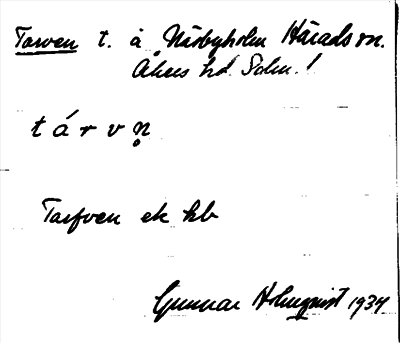 Tarven t. å Näsbyholm Härads sn.
Åkers hd. Söln.!
t á r v n̥
Tarfven ek kb
Gunnar Holmquist 1934